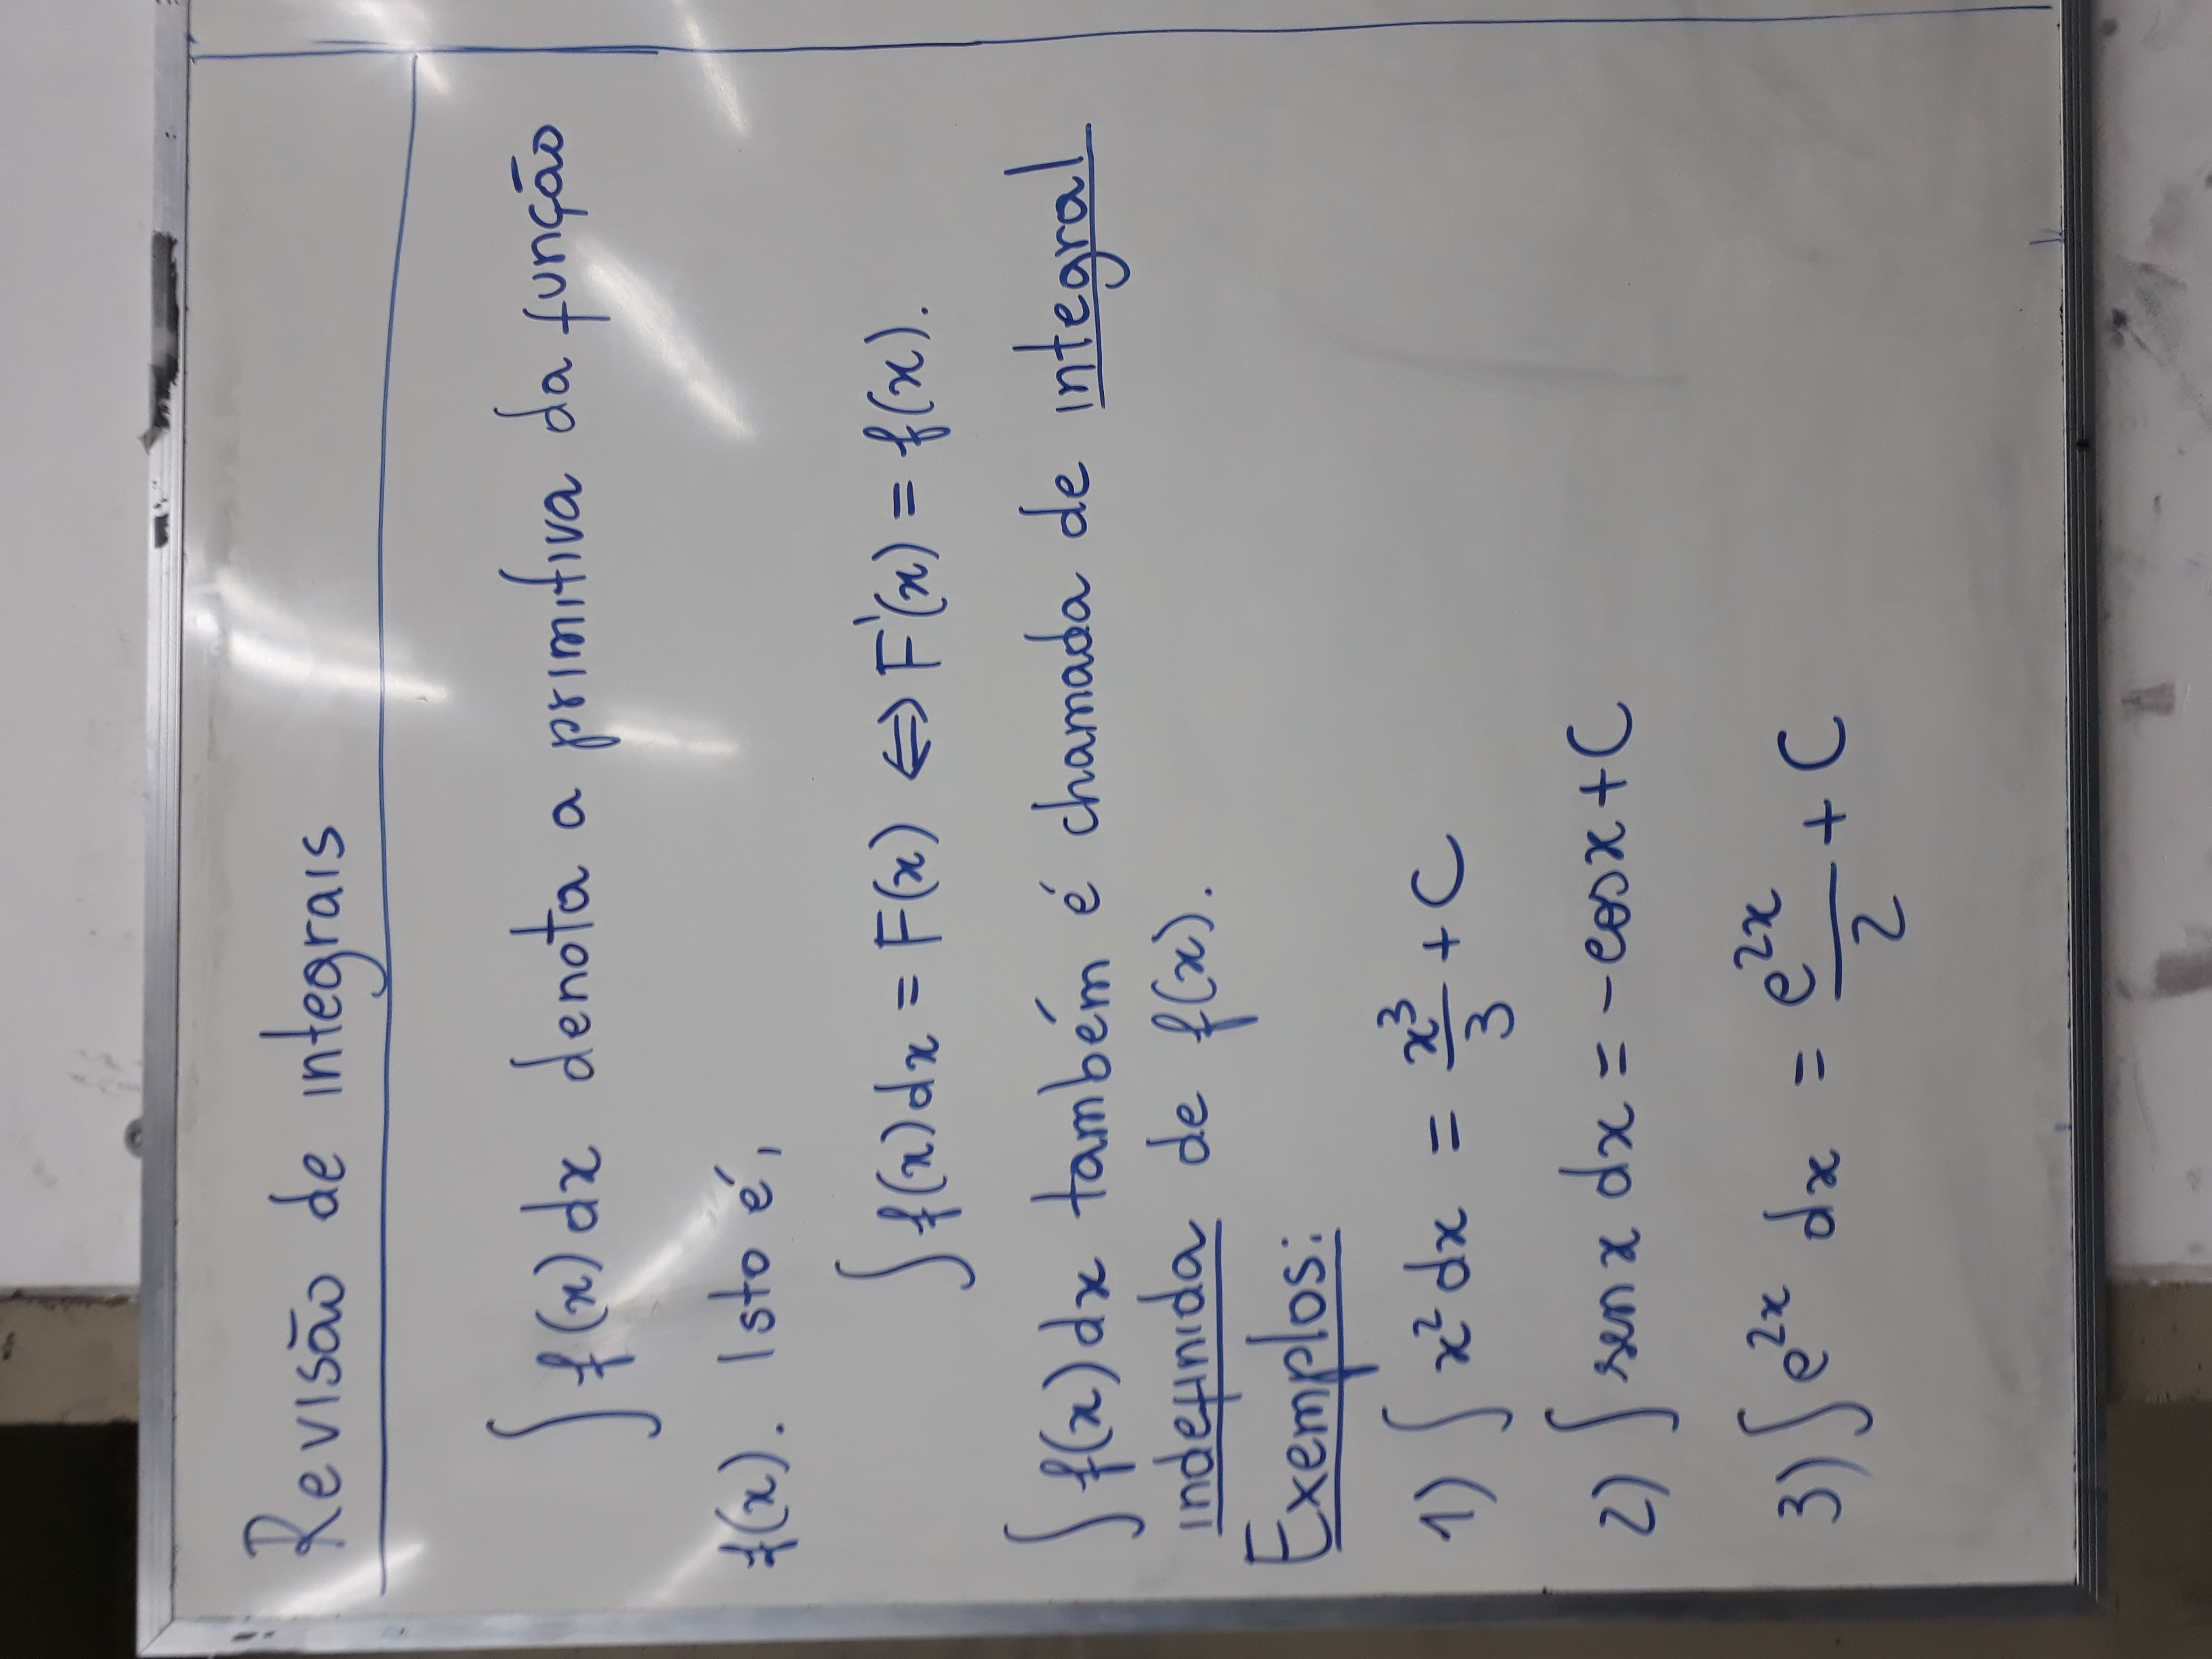 Revisão de integrais
∫ f(x) dx denota a primitiva da função
f(x). Isto é,
∫ f(x) dx = F(x) ⇔ F'(x) = f(x).
∫ f(x) dx também é chamada de integral
indefinida de f(x).
Exemplos:
1) ∫ x² dx = x³/3 + C
2) ∫ sen x dx = -cos x + C
3) ∫ e^{2x} dx = e^{2x}/2 + C